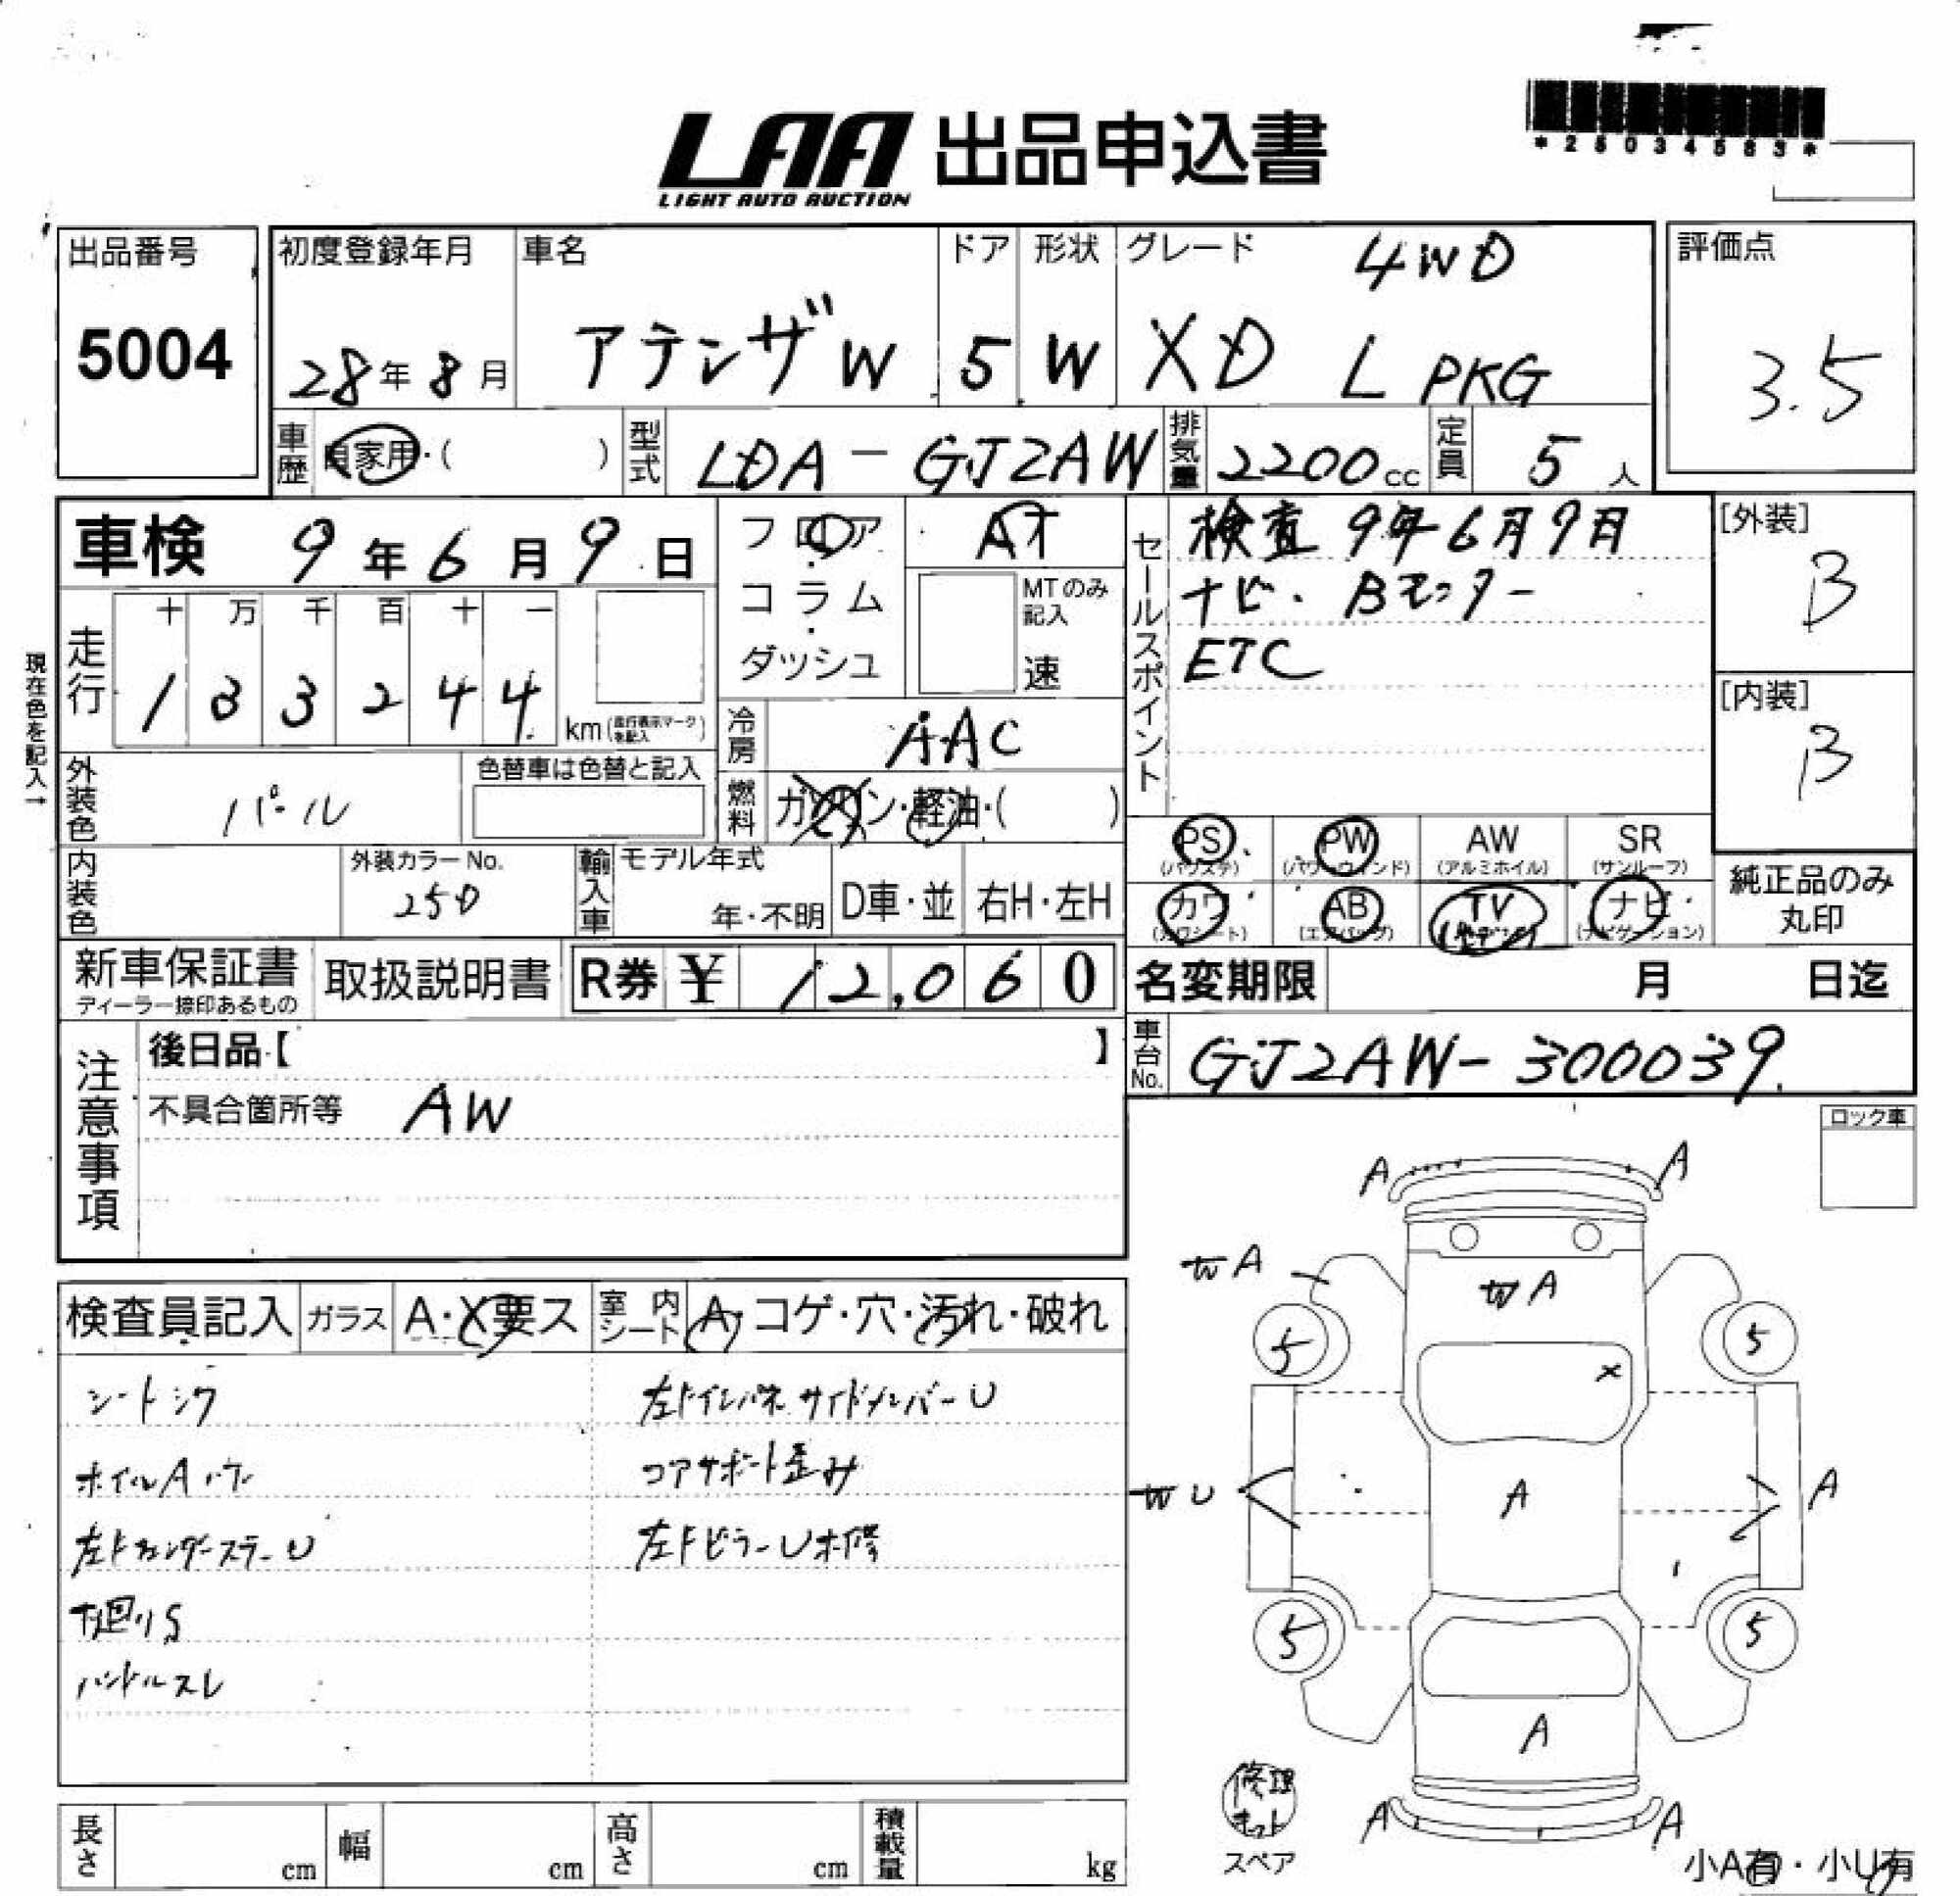 *25034583*
LAA 出品申込書
LIGHT AUTO AUCTION
出品番号
5004
初度登録年月
28年8月
車名
アテンザW
ドア
5
形状
W
グレード 4WD
XD L PKG
評価点
3.5
車歴 自家用・( )
型式 LDA-GJ2AW
排気量 2200cc
定員 5人
車検 9年6月9日
フロア・コラム・ダッシュ
AT
MTのみ記入
速
セールスポイント
検査 9年6月9日
ナビ・Bモニター
ETC
[外装]
B
[内装]
B
現在色を記入→
走行
十 万 千 百 十 一
1 3 3 2 4 4
km(走行表示マークを記入)
冷房 AAC
燃料 ガソリン・軽油・( )
外装色 パール
色替車は色替と記入
内装色
外装カラーNo.
25D
輸入車
モデル年式
年・不明
D車・並
右H・左H
PS (パワステ)
PW (パワーウィンド)
AW (アルミホイル)
SR (サンルーフ)
カワ (カワシート)
AB (エアバッグ)
TV
ナビ (ナビゲーション)
純正品のみ丸印
新車保証書
ディーラー捺印あるもの
取扱説明書
R券 ¥ 12,060
名変期限 月 日迄
車台No. GJ2AW-300039
注意事項
後日品【 】
不具合箇所等 AW
ロック車
検査員記入
ガラス A・X要ス
室内シート A・コゲ・穴・汚れ・破れ
シートシワ
ホイルAハゲ
左Fフェンダーステー U
下廻りS
ハンドルスレ
左Fインパネ サイドメンバーU
コアサポート歪み
左FピラーU未修
A A
W A
W A
5 5
X
W U
A
A
5 5
A
A A
修理キット
スペア
小A有・小U有
長さ cm
幅 cm
高さ cm
積載量 kg